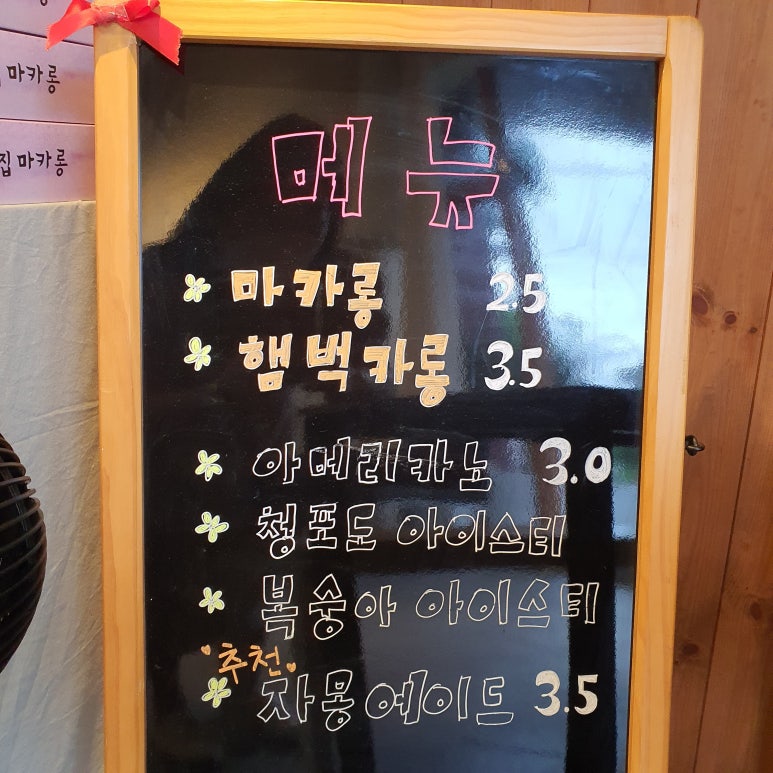 마카롱
집마카롱
메뉴
마카롱 2.5
햄벅카롱 3.5
아메리카노 3.0
청포도 아이스티
복숭아 아이스티
추천
자몽에이드 3.5